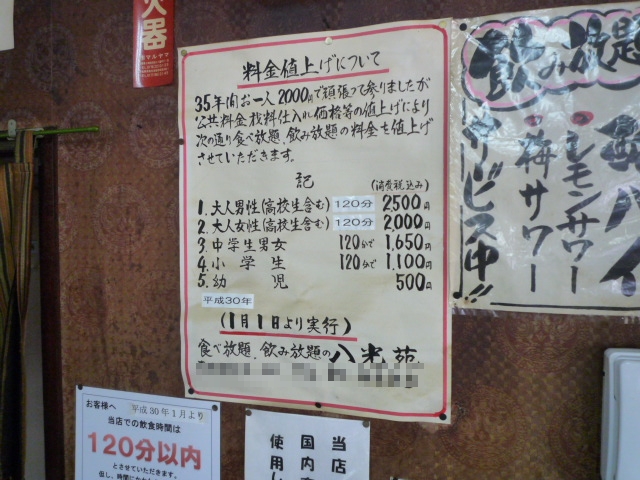 火器
料金値上げについて
35年間お一人2000円で頑張って参りましたが
公共料金、材料仕入れ価格等の値上げにより
次の通り食べ放題、飲み放題の料金を値上げ
させていただきます。
記
(消費税込み)
1.大人男性(高校生含む) 120分 2500円
2.大人女性(高校生含む) 120分 2,000円
3.中学生男女 120分で 1,650円
4.小学生 120分で 1,100円
5.幼児 500円
平成30年
(1月1日より実行)
食べ放題、飲み放題の八光苑
飲み放題
・レモンサワー
・梅サワー
サービス中!!
お客様へ 平成30年1月より
当店での飲食時間は
120分以内
とさせていただきます。
当店
国内
使用し